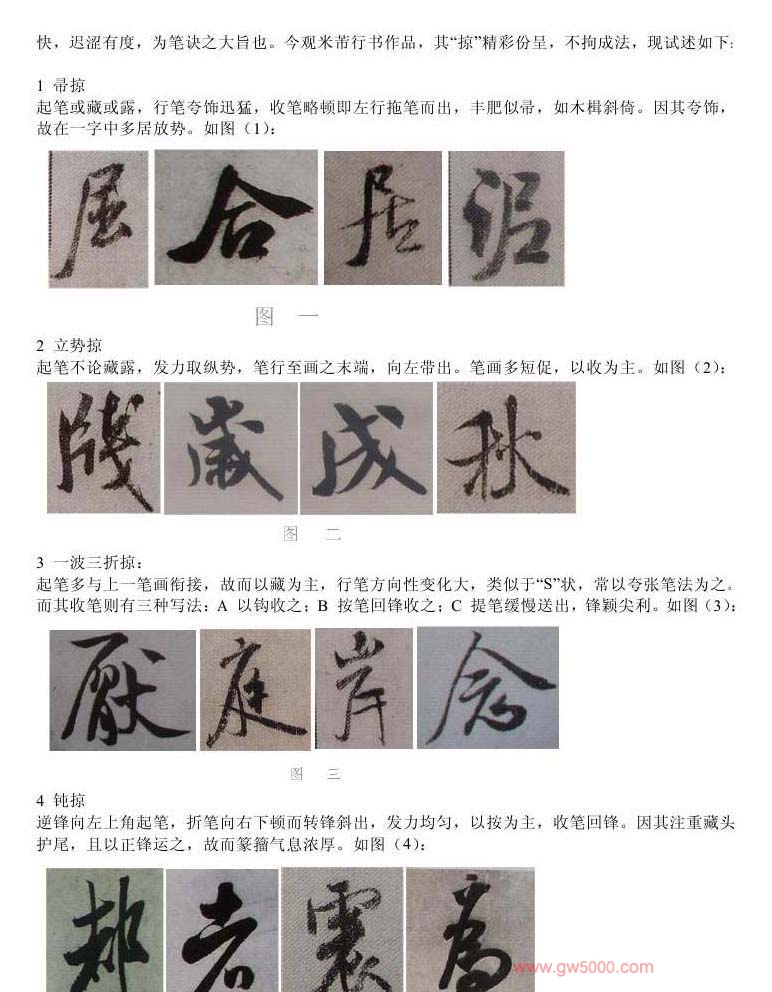 快，迟涩有度，为笔诀之大旨也。今观米芾行书作品，其“掠”精彩份呈，不拘成法，现试述如下：
1 帚掠
起笔或藏或露，行笔夸饰迅猛，收笔略顿即左行拖笔而出，丰肥似帚，如木楫斜倚。因其夸饰，
故在一字中多居放势。如图（1）：
屈 合 居 泥
图 一
2 立势掠
起笔不论藏露，发力取纵势，笔行至画之末端，向左带出。笔画多短促，以收为主。如图（2）：
牋 歲 成 秋
图 二
3 一波三折掠：
起笔多与上一笔画衔接，故而以藏为主，行笔方向性变化大，类似于“S”状，常以夸张笔法为之。
而其收笔则有三种写法：A 以钩收之；B 按笔回锋收之；C 提笔缓慢送出，锋颖尖利。如图（3）：
厭 庭 岸 念
图 三
4 钝掠
逆锋向左上角起笔，折笔向右下顿而转锋斜出，发力均匀，以按为主，收笔回锋。因其注重藏头
护尾，且以正锋运之，故而篆籀气息浓厚。如图（4）：
都 老 震 為
www.gw5000.com